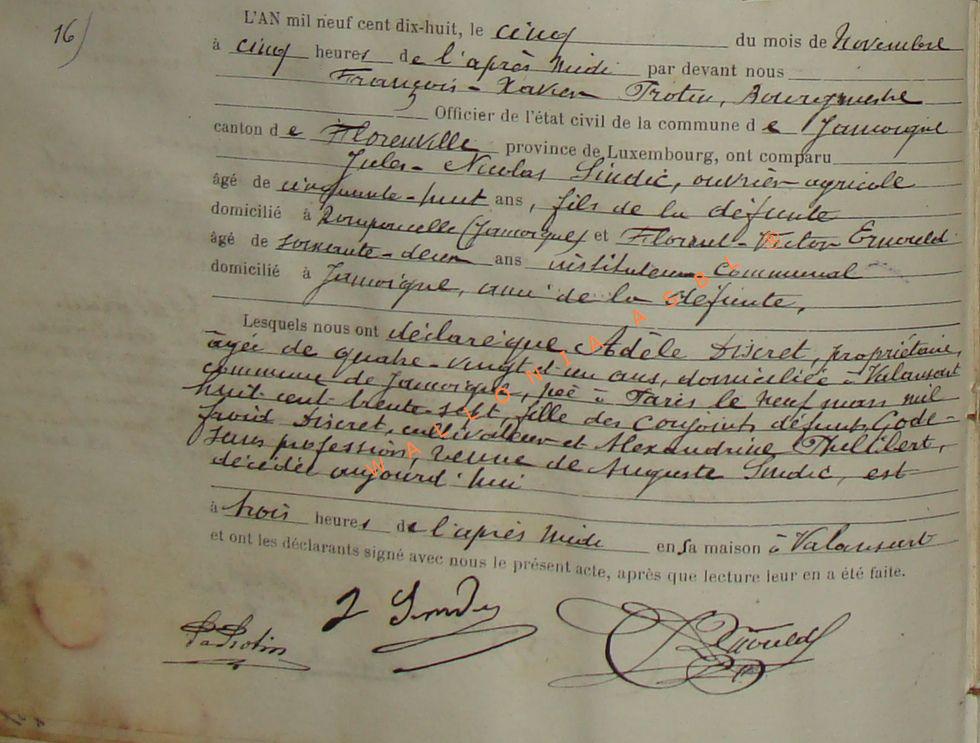 16)
L'AN mil neuf cent dix-huit, le cinq du mois de Novembre
à cinq heures de l'après midi par devant nous
François-Xavier Protin, Bourgmestre
Officier de l'état civil de la commune de Jamoigne
canton de Florenville province de Luxembourg, ont comparu
Jules-Nicolas Sindic, ouvrier agricole
âgé de cinquante-huit ans, fils de la défunte
domicilié à Romponcelle (Jamoigne) et Florent-Victor Ernould
âgé de soixante-deux ans instituteur communal
domicilié à Jamoigne, ami de la défunte,
Lesquels nous ont déclaré que Adèle Discret, propriétaire,
âgée de quatre-vingt-un ans, domiciliée à Valansart
commune de Jamoigne, née à Paris le neuf mars mil
huit cent trente-sept, fille des conjoints défunts Gode-
froid Discret, cultivateur et Alexandrine Philibert,
sans profession, veuve de Auguste Sindic, est
décédée aujourd'hui
à trois heures de l'après midi en sa maison à Valansart
et ont les déclarants signé avec nous le présent acte, après que lecture leur en a été faite.
J Sindic
Protin
Ernould
WALLONIA ASBL